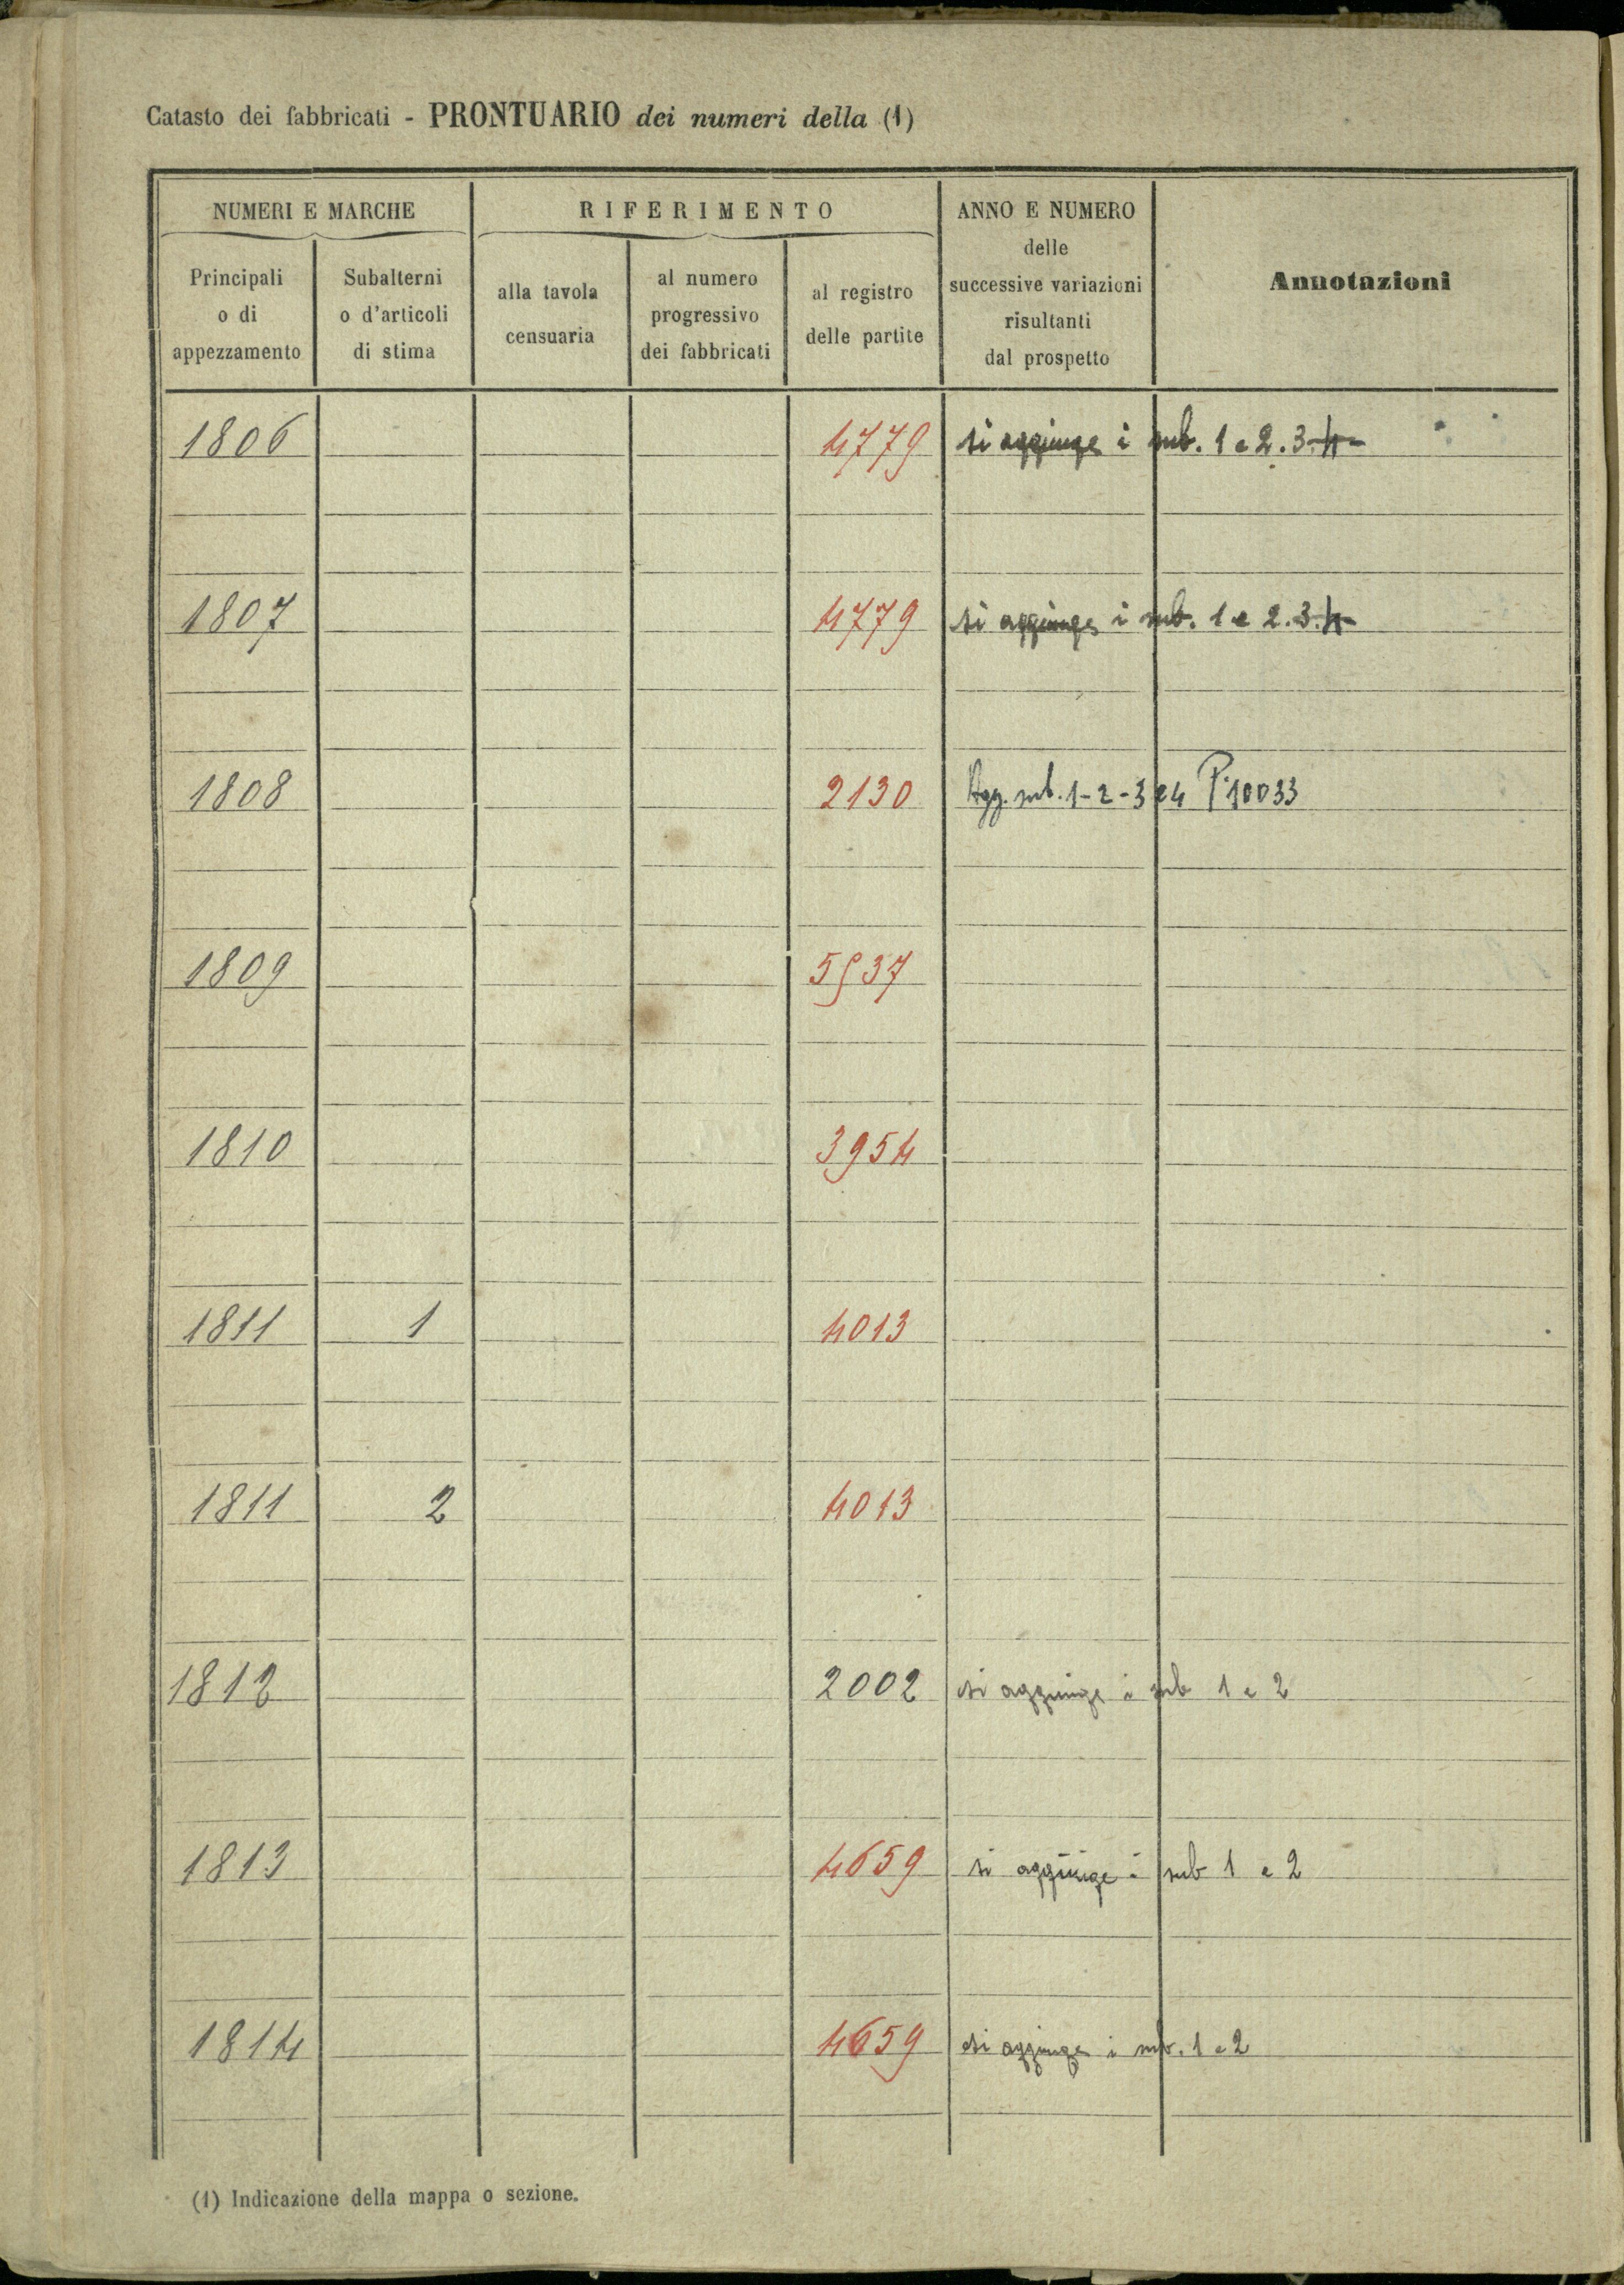 Catasto dei fabbricati - PRONTUARIO dei numeri della (1)
NUMERI E MARCHE
Principali
o di
appezzamento
Subalterni
o d'articoli
di stima
RIFERIMENTO
alla tavola
censuaria
al numero
progressivo
dei fabbricati
al registro
delle partite
ANNO E NUMERO
delle
successive variazioni
risultanti
dal prospetto
Annotazioni
1806 4779 si aggiunge i sub. 1 e 2. 3. 4
1807 4779 si aggiunge i sub. 1 e 2. 3. 4
1808 2130 Agg. sub. 1-2-3 e 4 P. 10033
1809 5937
1810 3954
1811 1 4013
1811 2 4013
1812 2002 si aggiunge i sub 1 e 2
1813 4659 si aggiunge i sub 1 e 2
1814 4659 si aggiunge i sub. 1 e 2
(1) Indicazione della mappa o sezione.